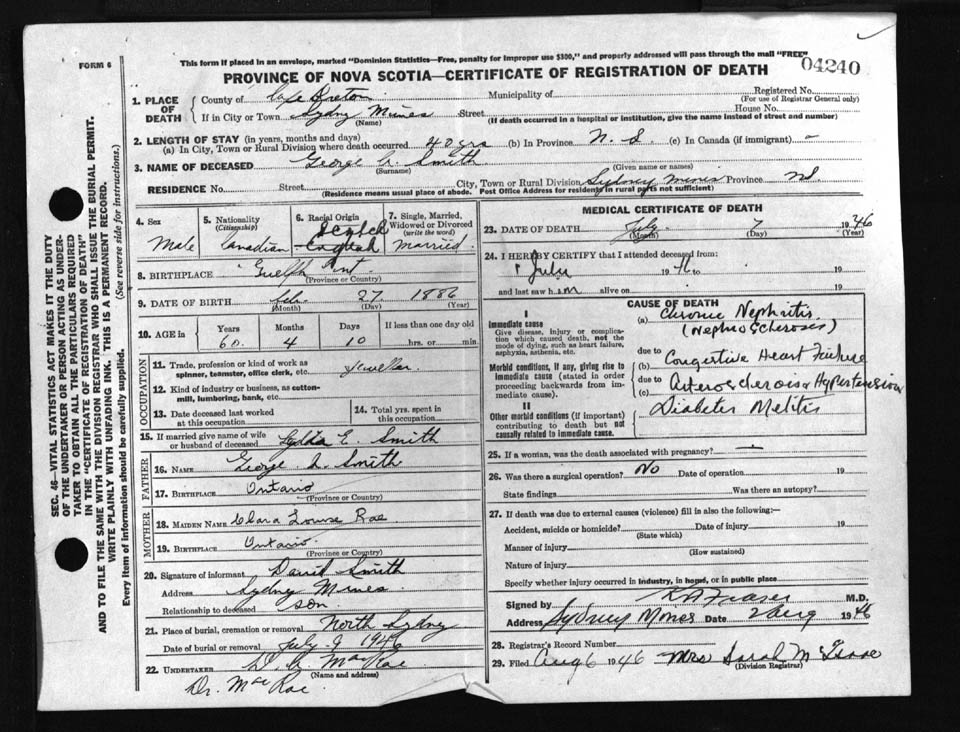 This form if placed in an envelope, marked "Dominion Statistics—Free, penalty for improper use $300," and properly addressed will pass through the mail "FREE"
FORM 6
04240
PROVINCE OF NOVA SCOTIA—CERTIFICATE OF REGISTRATION OF DEATH
SEC. 46—VITAL STATISTICS ACT MAKES IT THE DUTY
OF THE UNDERTAKER OR PERSON ACTING AS UNDER-
TAKER TO OBTAIN ALL THE PARTICULARS REQUIRED
IN THE "CERTIFICATE OF REGISTRATION OF DEATH"
AND TO FILE THE SAME WITH THE DIVISION REGISTRAR WHO SHALL ISSUE THE BURIAL PERMIT.
WRITE PLAINLY WITH UNFADING INK. THIS IS A PERMANENT RECORD.
Every item of information should be carefully supplied. (See reverse side for instructions.)
1. PLACE OF DEATH
County of Cape Breton Municipality of Registered No.
(For use of Registrar General only)
If in City or Town Sydney Mines Street House No.
(Name) (If death occurred in a hospital or institution, give the name instead of street and number)
2. LENGTH OF STAY (in years, months and days)
(a) In City, Town or Rural Division where death occurred 40 yrs (b) In Province N. S. (c) In Canada (if immigrant) -
3. NAME OF DECEASED George A. Smith
(Surname) (Given name or names)
RESIDENCE No. Street City, Town or Rural Division Sydney Mines Province N.S.
(Residence means usual place of abode. Post Office Address for residents in rural parts not sufficient)
4. Sex
Male
5. Nationality
(Citizenship)
Canadian
6. Racial Origin
Scotch
English
7. Single, Married,
Widowed or Divorced
(write the word)
Married
8. BIRTHPLACE Guelph Ont.
(Province or Country)
9. DATE OF BIRTH Feb. 27 1886
(Month) (Day) (Year)
10. AGE in
Years Months Days If less than one day old
60 4 10 hrs. or min.
OCCUPATION
11. Trade, profession or kind of work as
spinner, teamster, office clerk, etc. Jeweller
12. Kind of industry or business, as cotton-
mill, lumbering, bank, etc.
13. Date deceased last worked
at this occupation
14. Total yrs. spent in
this occupation
15. If married give name of wife
or husband of deceased Lydia E. Smith
FATHER
16. NAME George A. Smith
17. BIRTHPLACE Ontario
(Province or Country)
MOTHER
18. MAIDEN NAME Clara Louise Rae
19. BIRTHPLACE Ontario
(Province or Country)
20. Signature of informant David Smith
Address Sydney Mines
Relationship to deceased son
21. Place of burial, cremation or removal North Sydney
Date of burial or removal July 9 1946
22. UNDERTAKER Mac Rae
(Name and address)
Dr. Mac Rae
MEDICAL CERTIFICATE OF DEATH
23. DATE OF DEATH July 7 1946
(Month) (Day) (Year)
24. I HEREBY CERTIFY that I attended deceased from:
July 1946 to 19
and last saw him alive on 19
CAUSE OF DEATH
I
Immediate cause
Give disease, injury or complica-
tion which caused death, not the
mode of dying, such as heart failure,
asphyxia, asthenia, etc.
(a) Chronic Nephritis
(Nephro Scleroses)
due to
Morbid conditions, if any, giving rise to
immediate cause (stated in order
proceeding backwards from im-
mediate cause).
(b) Congestive Heart Failure
due to
(c) Arterosclerosis & Hypertension
II
Other morbid conditions (if important)
contributing to death but not
causally related to immediate cause.
Diabetes Melitis
25. If a woman, was the death associated with pregnancy? —
26. Was there a surgical operation? No Date of operation 19
State findings Was there an autopsy?
27. If death was due to external causes (violence) fill in also the following:—
Accident, suicide or homicide? Date of injury 19
(State which)
Manner of injury
(How sustained)
Nature of injury
Specify whether injury occurred in industry, in home, or in public place
Signed by K A Fraser M.D.
Address Sydney Mines Date 2 Aug 1946
28. Registrar's Record Number
29. Filed Aug 6 1946 Mrs Sarah McIsaac
(Division Registrar)